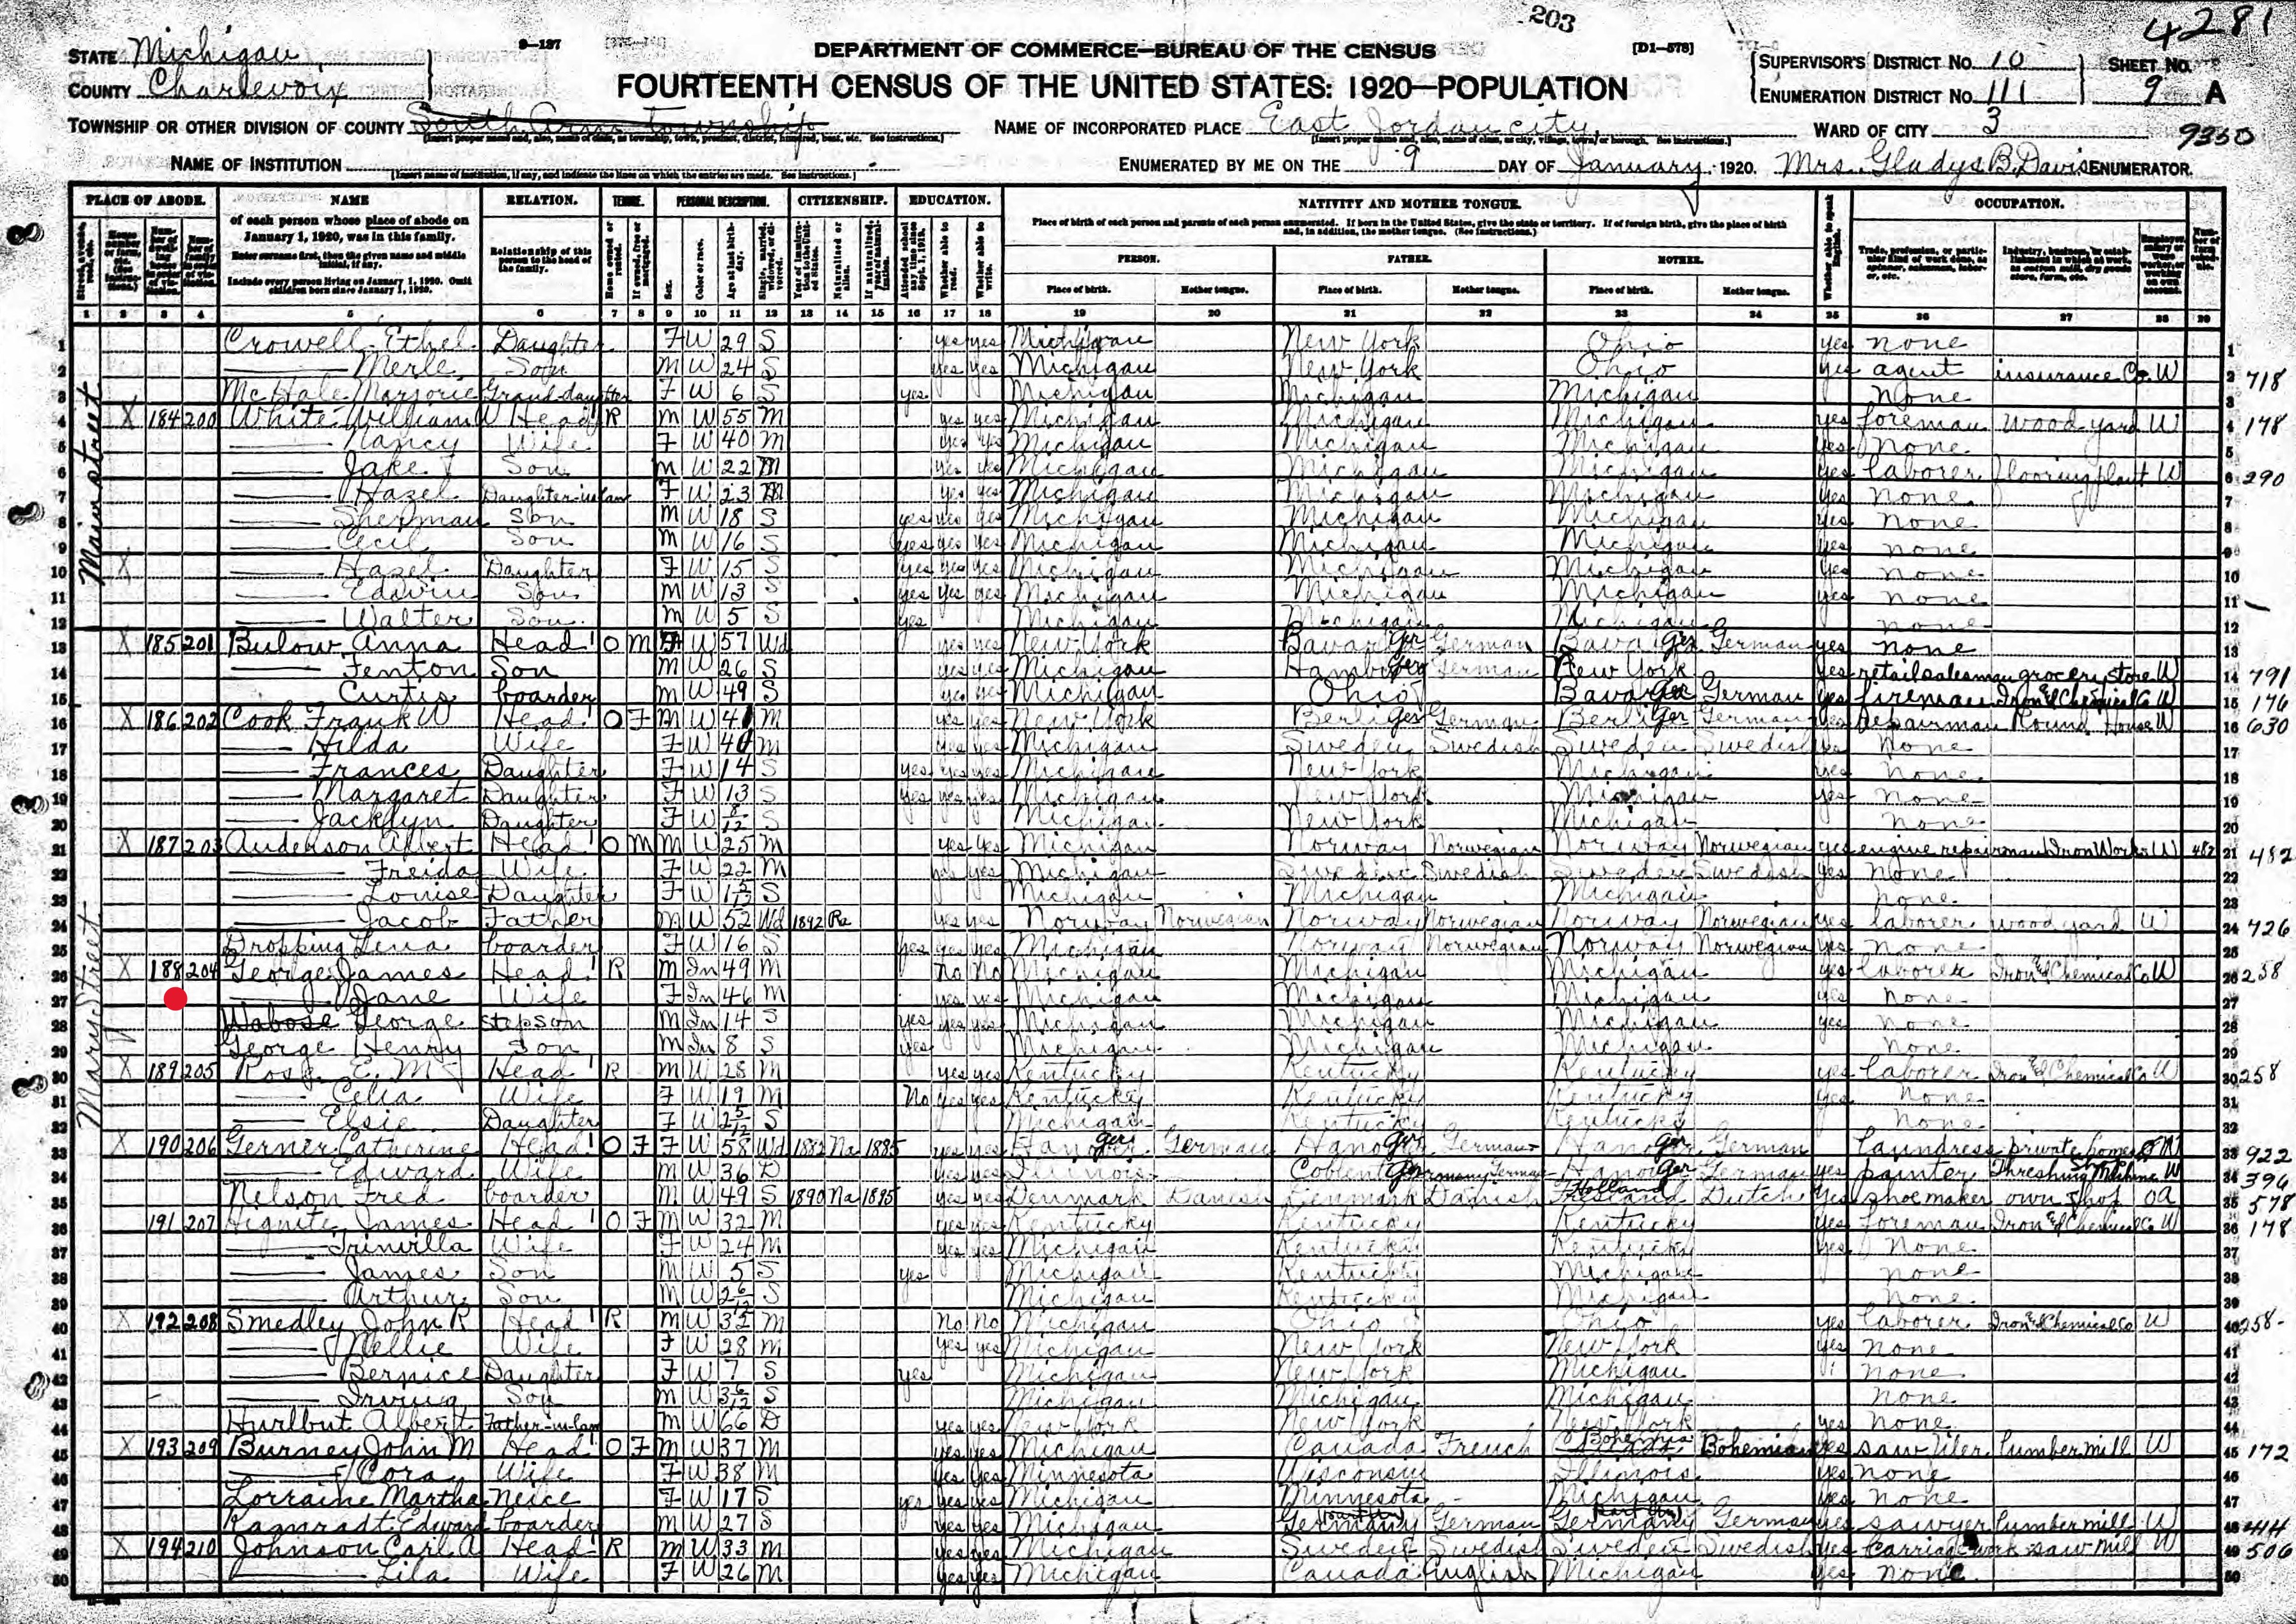 203
4281
STATE Michigan
9-137
DEPARTMENT OF COMMERCE—BUREAU OF THE CENSUS
[D1-578]
SUPERVISOR'S DISTRICT No. 10 SHEET No.
COUNTY Charlevoix
FOURTEENTH CENSUS OF THE UNITED STATES: 1920—POPULATION
ENUMERATION DISTRICT No. 111 9 A
TOWNSHIP OR OTHER DIVISION OF COUNTY South Arm township
NAME OF INCORPORATED PLACE East Jordan city
WARD OF CITY 3
9350
NAME OF INSTITUTION
ENUMERATED BY ME ON THE 9 DAY OF January, 1920. Mrs. Gladys B. Davis ENUMERATOR.
PLACE OF ABODE. NAME RELATION. TENURE. PERSONAL DESCRIPTION. CITIZENSHIP. EDUCATION. NATIVITY AND MOTHER TONGUE. OCCUPATION.
of each person whose place of abode on January 1, 1920, was in this family.
Enter surname first, then the given name and middle initial, if any.
Include every person living on January 1, 1920. Omit children born since January 1, 1920.
Relationship of this person to the head of the family.
Place of birth of each person and parents of each person enumerated. If born in the United States, give the state or territory. If of foreign birth, give the place of birth and, in addition, the mother tongue. (See Instructions.)
PERSON. FATHER. MOTHER.
Place of birth. Mother tongue. Place of birth. Mother tongue. Place of birth. Mother tongue.
1 2 3 4 5 6 7 8 9 10 11 12 13 14 15 16 17 18 19 20 21 22 23 24 25 26 27 28 29
Main street
1 Crowell Ethel Daughter F W 29 S yes yes Michigan New York Ohio yes none 1
2 Merle Son M W 24 S yes yes Michigan New York Ohio yes agent insurance Co. W 2 718
3 McHale Marjorie Grand-daughter F W 6 S yes Michigan Michigan Michigan None 3
4 X 184 200 White William W Head R M W 55 M yes yes Michigan Michigan Michigan yes foreman Wood yard W 4 178
5 Nancy Wife F W 40 M yes yes Michigan Michigan Michigan yes None 5
6 Jake Son M W 22 M yes yes Michigan Michigan Michigan yes laborer flooring plant W 6 290
7 Hazel Daughter-in-law F W 23 M yes yes Michigan Michigan Michigan yes none 7
8 Sherman Son M W 18 S yes yes yes Michigan Michigan Michigan yes none 8
9 Cecil Son M W 16 S yes yes yes Michigan Michigan Michigan yes none 9
10 X Hazel Daughter F W 15 S yes yes yes Michigan Michigan Michigan yes none 10
11 Edwin Son M W 13 S yes yes yes Michigan Michigan Michigan yes none 11
12 Walter Son M W 5 S yes Michigan Michigan Michigan none 12
13 X 185 201 Bulow Anna Head O M F W 57 Wd yes yes New York Bavar Ger German Bava Ger German yes none 13
14 Fenton Son M W 26 S yes yes Michigan Hamburg Ger German New York yes retail salesman grocery store W 14 791
15 Curtis boarder M W 49 S yes yes Michigan Ohio Bavar Ger German yes fireman Iron & Chemical Co W 15 176
16 X 186 202 Cook Frank W Head O F M W 41 M yes yes New York Berli Ger German Berli Ger German yes repairman Round House W 16 630
17 Hilda Wife F W 40 M yes yes Michigan Sweden Swedish Sweden Swedish yes None 17
18 Frances Daughter F W 14 S yes yes yes Michigan New York Michigan yes none 18
19 Margaret Daughter F W 13 S yes yes yes Michigan New York Michigan yes none 19
20 Jacklyn Daughter F W 8/12 S Michigan New York Michigan none 20
21 X 187 203 Anderson Albert Head O M M W 25 M yes yes Michigan Norway Norwegian Norway Norwegian yes engine repairman Iron Works W 482 21 482
22 Freida Wife F W 22 M yes yes Michigan Sweden Swedish Sweden Swedish yes None 22
23 Louise Daughter F W 1 5/12 S Michigan Michigan Michigan none 23
Mary Street
24 Jacob Father M W 52 Wd 1892 Pa yes yes Norway Norwegian Norway Norwegian Norway Norwegian yes laborer wood yard W 24 726
25 Dropping Lena boarder F W 16 S yes yes yes Michigan Norway Norwegian Norway Norwegian yes none 25
26 X 188 204 George James Head R M In 49 M No No Michigan Michigan Michigan yes laborer Iron & Chemical Co W 26 258
27 Jane Wife F In 46 M yes yes Michigan Michigan Michigan yes none 27
28 Wabose George stepson M In 14 S yes yes yes Michigan Michigan Michigan yes none 28
29 George Henry Son M In 8 S yes Michigan Michigan Michigan none 29
30 X 189 205 Rose E. M Head R M W 28 M yes yes Kentucky Kentucky Kentucky yes laborer Iron & Chemical Co W 30 258
31 Celia Wife F W 19 M No yes yes Kentucky Kentucky Kentucky yes none 31
32 Elsie Daughter F W 2 5/12 S Michigan Kentucky Kentucky none 32
33 X 190 206 Gerner Catherine Head O F F W 58 Wd 1882 Na 1885 yes yes Hano Ger German Hano Ger German Hano Ger German laundress private homes 33 922
34 Edward Wife M W 36 D yes yes Illinois Coblentz Germany German Hano Ger German yes painter Threshing Machine W 34 394
35 Nelson Fred boarder M W 49 S 1890 Na 1895 yes yes Denmark Danish Denmark Danish Holland Dutch yes shoemaker own shop OA 35 578
36 191 207 Hignite James Head O F M W 32 M yes yes Kentucky Kentucky Kentucky yes foreman Iron & Chemical Co W 36 178
37 Trinvilla Wife F W 24 M yes yes Michigan Kentucky Kentucky yes None 37
38 James Son M W 5 S yes Michigan Kentucky Michigan none 38
39 Arthur Son M W 2 6/12 S Michigan Kentucky Michigan none 39
40 X 192 208 Smedley John R Head R M W 35 M No No Michigan Ohio Ohio yes laborer Iron & Chemical Co W 40 258
41 Nellie Wife F W 28 M yes yes Michigan New York New York yes none 41
42 Bernice Daughter F W 7 S yes Michigan New York Michigan none 42
43 Irving Son M W 3 6/12 S Michigan Michigan Michigan none 43
44 Hurlbut Albert Father-in-law M W 66 D yes yes New York New York New York yes none 44
45 X 193 209 Burney John M Head O F M W 37 M yes yes Michigan Canada French Bohemia Bohemian yes saw filer lumber mill W 45 172
46 Cora Wife F W 38 M yes yes Minnesota Wisconsin Illinois yes none 46
47 Lorraine Martha Neice F W 17 S yes yes yes Michigan Minnesota Michigan yes none 47
48 Kamradt Edward boarder M W 27 S yes yes Michigan Germany German Germany German yes sawyer lumber mill W 48 414
49 X 194 210 Johnson Carl A Head R M W 33 M yes yes Michigan Sweden Swedish Sweden Swedish yes carriage work saw mill W 49 506
50 Lila Wife F W 26 M yes yes Michigan Canada English Michigan yes none 50